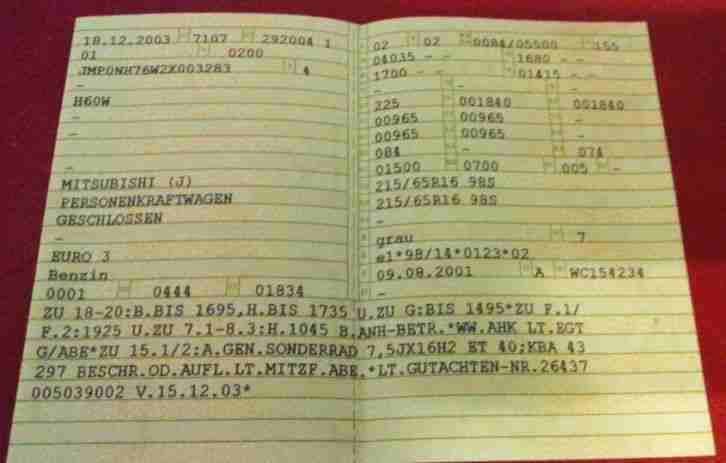 18.12.2003 7107 292004 1
01 0200
JMP0NH76W2X003283 4
-
H60W
-
-
-
MITSUBISHI (J)
PERSONENKRAFTWAGEN
GESCHLOSSEN
-
EURO 3
Benzin
0001 0444 01834
02 02 0084/05500 155
04035 - - 1680 - -
1700 - - 01415 - -
- - -
225 001840 001840
00965 00965 -
00965 00965 -
084 - 074
01500 0700 005 -
215/65R16 98S
215/65R16 98S
-
grau 7
e1*98/14*0123*02
09.08.2001 A WC154234
-
ZU 18-20:B.BIS 1695,H.BIS 1735 U.ZU G:BIS 1495*ZU F.1/
F.2:1925 U.ZU 7.1-8.3:H.1045 B.ANH-BETR.*WW.AHK LT.EGT
G/ABE*ZU 15.1/2:A.GEN.SONDERRAD 7,5JX16H2 ET 40;KBA 43
297 BESCHR.OD.AUFL.LT.MITZF.ABE.*LT.GUTACHTEN-NR.26437
005039002 V.15.12.03*